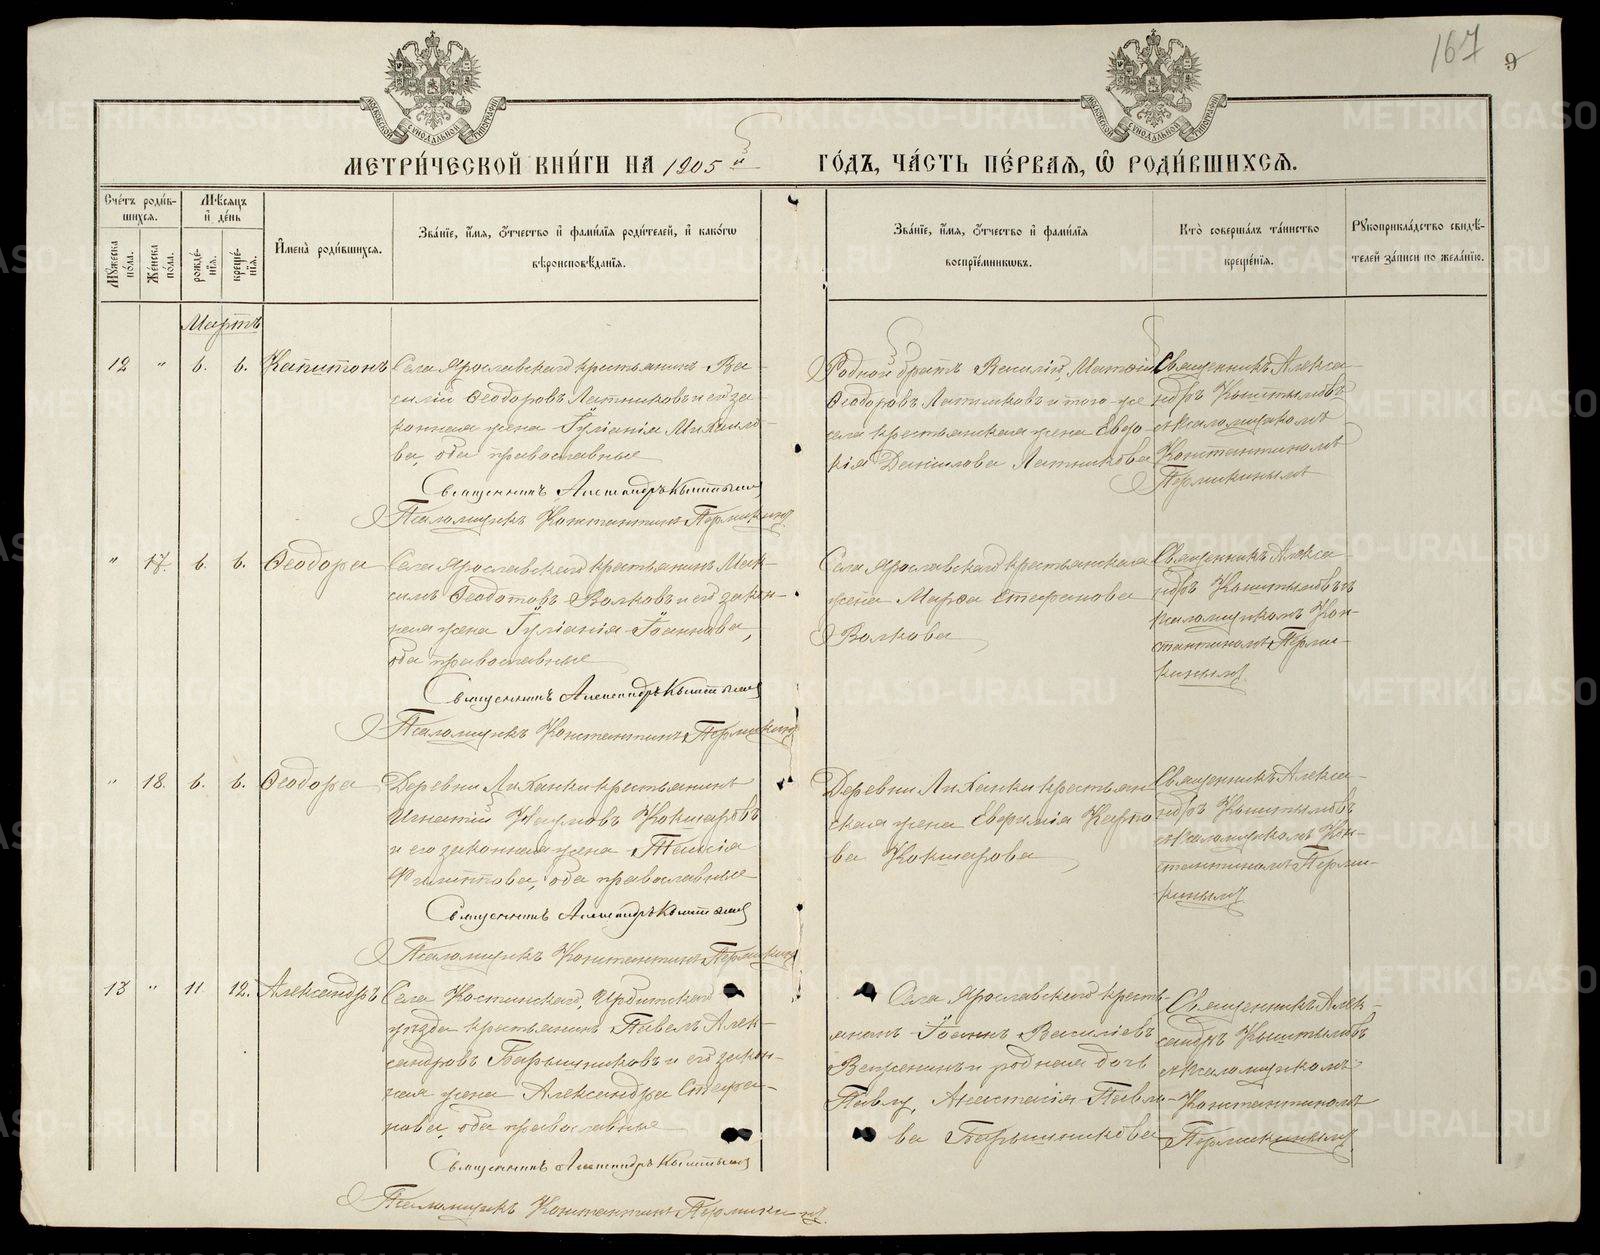 167 9
МЕТРИ́ЧЕСКОЙ КНИ́ГИ НА 1905й ГО́ДЪ, ЧА́СТЬ ПЕ́РВАЯ, Ѡ РОДИ́ВШИХСЯ.
Сче́тъ роди́вшихся.
Мꙋ́жеска по́ла.
Же́нска по́ла.
Мѣ́сяцъ и де́нь
рожде́нїя.
креще́нїя.
Имена̀ роди́вшихся.
Зва́нїе, и́мя, ѻ́тчество и фами́лїя роди́телей, и како́гѡ
вѣроисповѣ́данїя.
Зва́нїе, и́мя, ѻ́тчество и фами́лїя
воспрїе́мникѡвъ.
Кто̀ соверша́лъ та́инство
креще́нїя.
Рꙋкоприкла́дство свидѣ́-
телей за́писи по жела́нїю.
Мартъ
12 " 6. 6. Капитонъ
Села Ярославскаго крестьянинъ Ва-
силій Ѳеодоровъ Латниковъ и его за-
конная жена Іуліанія Михаило-
ва, оба православные
Священникъ Александръ Кыштымовъ
Псаломщикъ Константинъ Пермикинъ
Родной братъ Василій, Матѳій
Ѳеодоровъ Латниковъ и того-же
села крестьянская жена Евдо-
кія Данилова Латникова
Священникъ Алекса-
ндръ Кыштымовъ
съ псаломщикомъ
Константиномъ
Пермикинымъ
" 17. 6. 6. Ѳеодора
Села Ярославскаго крестьянинъ Мак-
симъ Ѳеодотовъ Волковъ и его закон-
ная жена Іуліанія Іоаннова,
оба православные
Священникъ Александръ Кыштымовъ
Псаломщикъ Константинъ Пермикинъ
Села Ярославскаго крестьянская
жена Марѳа Стефанова
Волкова
Священникъ Алекса-
ндръ Кыштымовъ съ
псаломщикомъ Кон-
стантиномъ Перми-
кинымъ
" 18. 6. 6. Ѳеодора
Деревни Лиханки крестьянинъ
Игнатій Наумовъ Кокшаровъ
и его законная жена Таисія
Филиппова, оба православные
Священникъ Александръ Кыштымовъ
Псаломщикъ Константинъ Пермикинъ
Деревни Лиханки крестьян-
ская жена Евфимія Карпо
ва Кокшарова
Священникъ Алекса-
ндръ Кыштымовъ
съ псаломщикомъ Кон-
стантиномъ Перми-
кинымъ
13 " 11 12. Александръ
Села Костинскаго, Ирбитскаго
уѣзда крестьянинъ Павелъ Алек-
сандровъ Барышниковъ и его закон-
ная жена Александра Стефа-
нова, оба православные
Священникъ Александръ Кыштымовъ
Псаломщикъ Константинъ Пермикинъ
Села Ярославскаго кресть-
янинъ Іоаннъ Василіевъ
и родная дочь
Павлу, Анастасія Павло-
ва Барышникова
Священникъ Алек-
сандръ Кыштымовъ
съ псаломщикомъ
Константиномъ
Пермикинымъ
METRIKI.GASO-URAL.RU